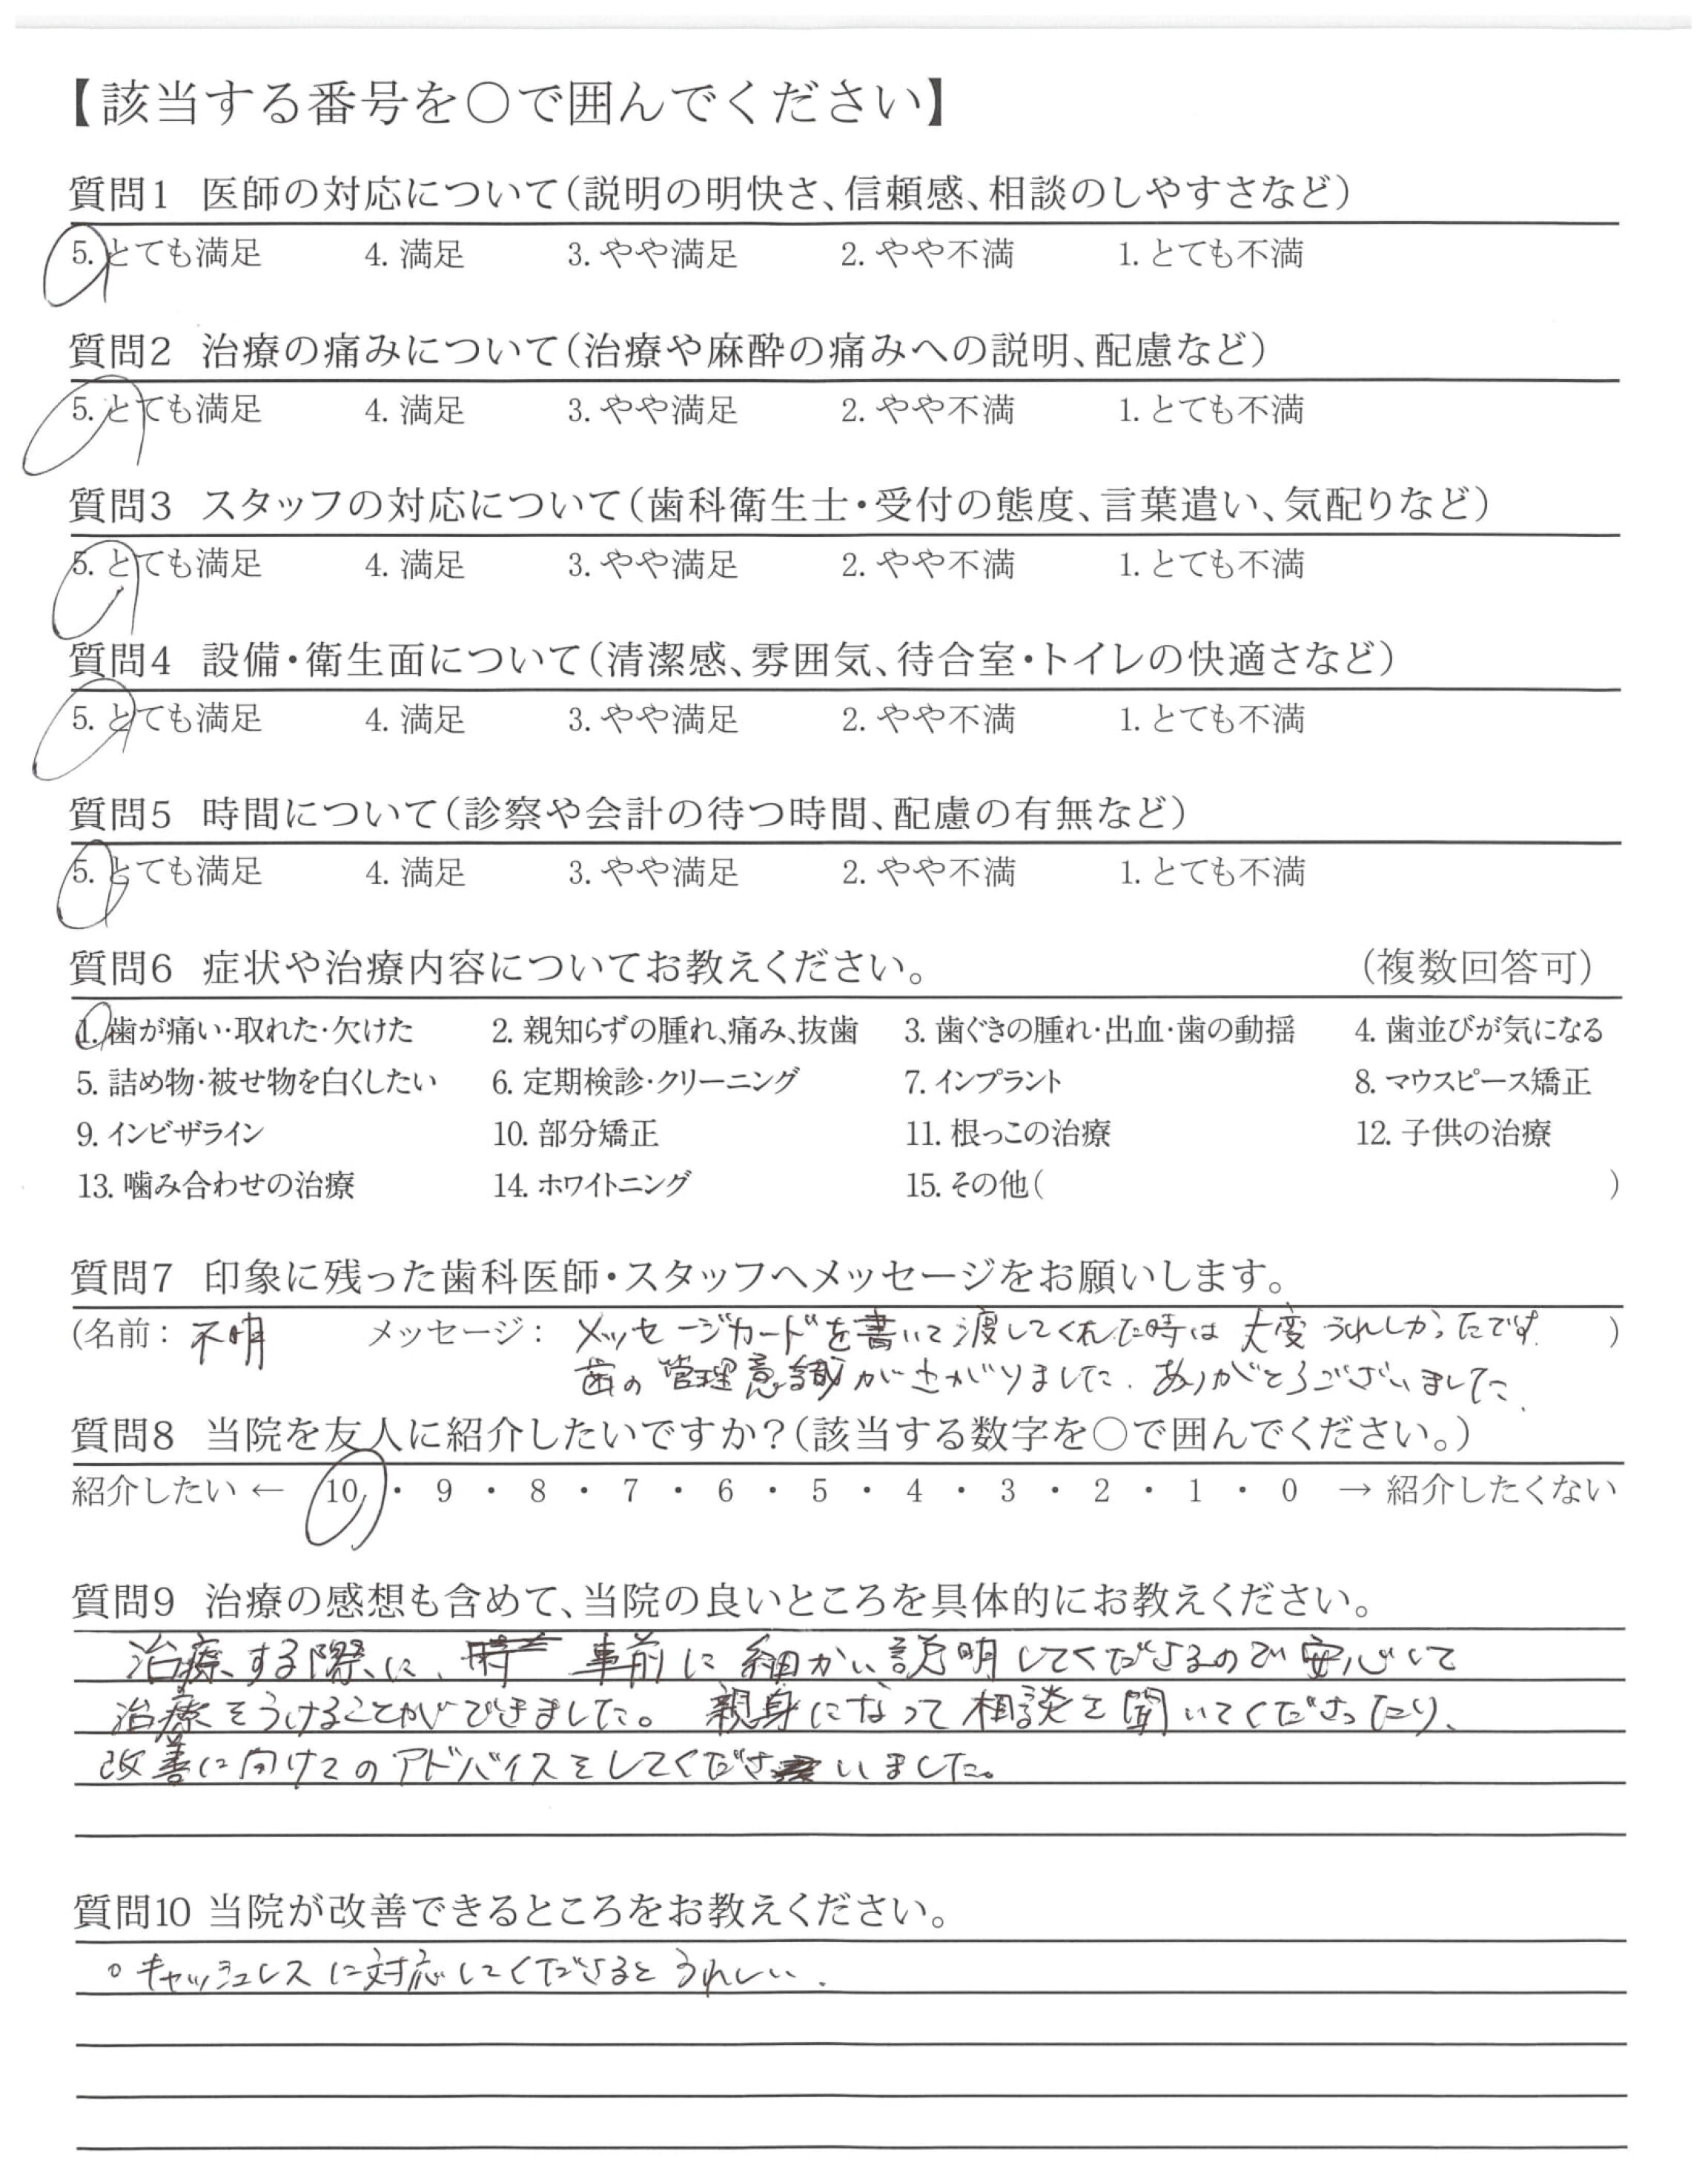 【該当する番号を○で囲んでください】
質問1 医師の対応について(説明の明快さ、信頼感、相談のしやすさなど)
5. とても満足 4. 満足 3. やや満足 2. やや不満 1. とても不満
質問2 治療の痛みについて(治療や麻酔の痛みへの説明、配慮など)
5. とても満足 4. 満足 3. やや満足 2. やや不満 1. とても不満
質問3 スタッフの対応について(歯科衛生士・受付の態度、言葉遣い、気配りなど)
5. とても満足 4. 満足 3. やや満足 2. やや不満 1. とても不満
質問4 設備・衛生面について(清潔感、雰囲気、待合室・トイレの快適さなど)
5. とても満足 4. 満足 3. やや満足 2. やや不満 1. とても不満
質問5 時間について(診察や会計の待つ時間、配慮の有無など)
5. とても満足 4. 満足 3. やや満足 2. やや不満 1. とても不満
質問6 症状や治療内容についてお教えください。 (複数回答可)
1. 歯が痛い・取れた・欠けた 2. 親知らずの腫れ、痛み、抜歯 3. 歯ぐきの腫れ・出血・歯の動揺 4. 歯並びが気になる
5. 詰め物・被せ物を白くしたい 6. 定期検診・クリーニング 7. インプラント 8. マウスピース矯正
9. インビザライン 10. 部分矯正 11. 根っこの治療 12. 子供の治療
13. 噛み合わせの治療 14. ホワイトニング 15. その他( )
質問7 印象に残った歯科医師・スタッフへメッセージをお願いします。
(名前: 不明 メッセージ: メッセージカードを書いて渡してくれた時は大変うれしかったです。 )
歯の管理意識が上がりました。ありがとうございました。
質問8 当院を友人に紹介したいですか?(該当する数字を○で囲んでください。)
紹介したい ← 10 ・ 9 ・ 8 ・ 7 ・ 6 ・ 5 ・ 4 ・ 3 ・ 2 ・ 1 ・ 0 → 紹介したくない
質問9 治療の感想も含めて、当院の良いところを具体的にお教えください。
治療する際に、事前に細かい説明してくださるので安心して
治療をうけることができました。親身になって相談を聞いてくださったり、
改善に向けてのアドバイスをしてくださいました。
質問10 当院が改善できるところをお教えください。
○キャッシュレスに対応してくださるとうれしい.